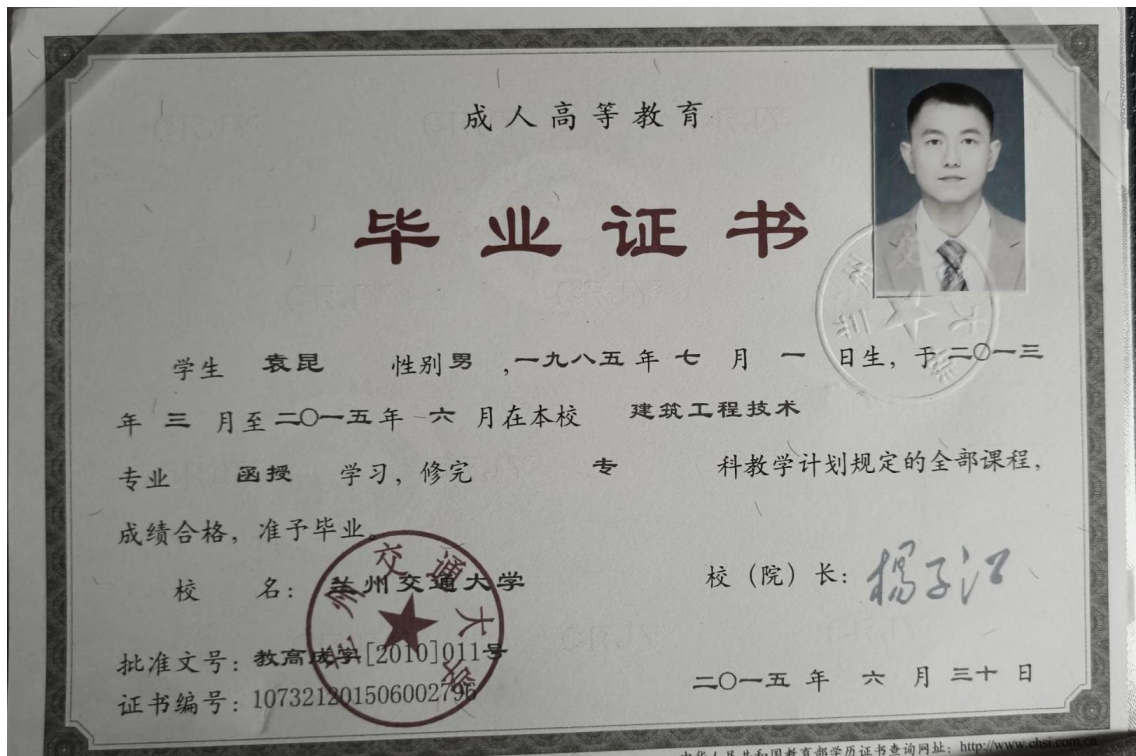 成人高等教育
毕业证书
学生 袁昆 性别男,一九八五年 七 月 一 日生,于二〇一三
年 三 月至二〇一五年 六 月在本校 建筑工程技术
专业 函授 学习,修完 专 科教学计划规定的全部课程,
成绩合格,准予毕业。
校 名:兰州交通大学
校(院)长:杨子江
批准文号:教高成字[2010]011号
证书编号:107321201506002796
二〇一五 年 六 月 三十 日
兰州交通大学
兰州交通大学
中华人民共和国教育部学历证书查询网址:http://www.chsi.com.cn